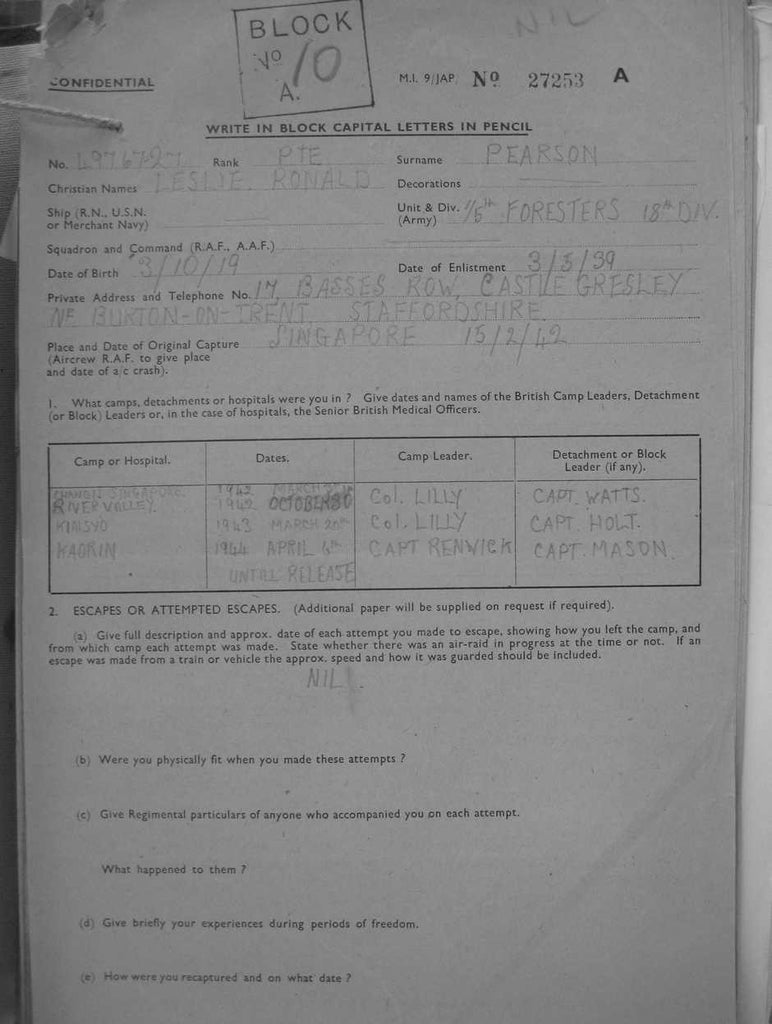 NIL
BLOCK
No 10
A.
CONFIDENTIAL
M.I. 9/JAP. No 27253 A
WRITE IN BLOCK CAPITAL LETTERS IN PENCIL
No. 4976727 Rank PTE Surname PEARSON
Christian Names LESLIE RONALD Decorations
Ship (R.N., U.S.N. or Merchant Navy)
Unit & Div. (Army) 1/5th FORESTERS 18th DIV.
Squadron and Command (R.A.F., A.A.F.)
Date of Birth 3/10/19 Date of Enlistment 3/5/39
Private Address and Telephone No. 17, BASSES ROW, CASTLE GRESLEY
NR BURTON-ON-TRENT. STAFFORDSHIRE.
Place and Date of Original Capture SINGAPORE 15/2/42
(Aircrew R.A.F. to give place
and date of a/c crash).
1. What camps, detachments or hospitals were you in ? Give dates and names of the British Camp Leaders, Detachment
(or Block) Leaders or, in the case of hospitals, the Senior British Medical Officers.
Camp or Hospital. Dates. Camp Leader. Detachment or Block Leader (if any).
CHANGI SINGAPORE. 1942 MARCH
RIVER VALLEY. 1942 OCTOBER Col. LILLY CAPT. WATTS.
KINSYO 1943 MARCH 20th Col. LILLY CAPT. HOLT.
KAORIN 1944 APRIL 6th CAPT RENWICK CAPT. MASON.
UNTILL RELEASE
2. ESCAPES OR ATTEMPTED ESCAPES. (Additional paper will be supplied on request if required).
(a) Give full description and approx. date of each attempt you made to escape, showing how you left the camp, and
from which camp each attempt was made. State whether there was an air-raid in progress at the time or not. If an
escape was made from a train or vehicle the approx. speed and how it was guarded should be included.
NIL
(b) Were you physically fit when you made these attempts ?
(c) Give Regimental particulars of anyone who accompanied you on each attempt.
What happened to them ?
(d) Give briefly your experiences during periods of freedom.
(e) How were you recaptured and on what date ?